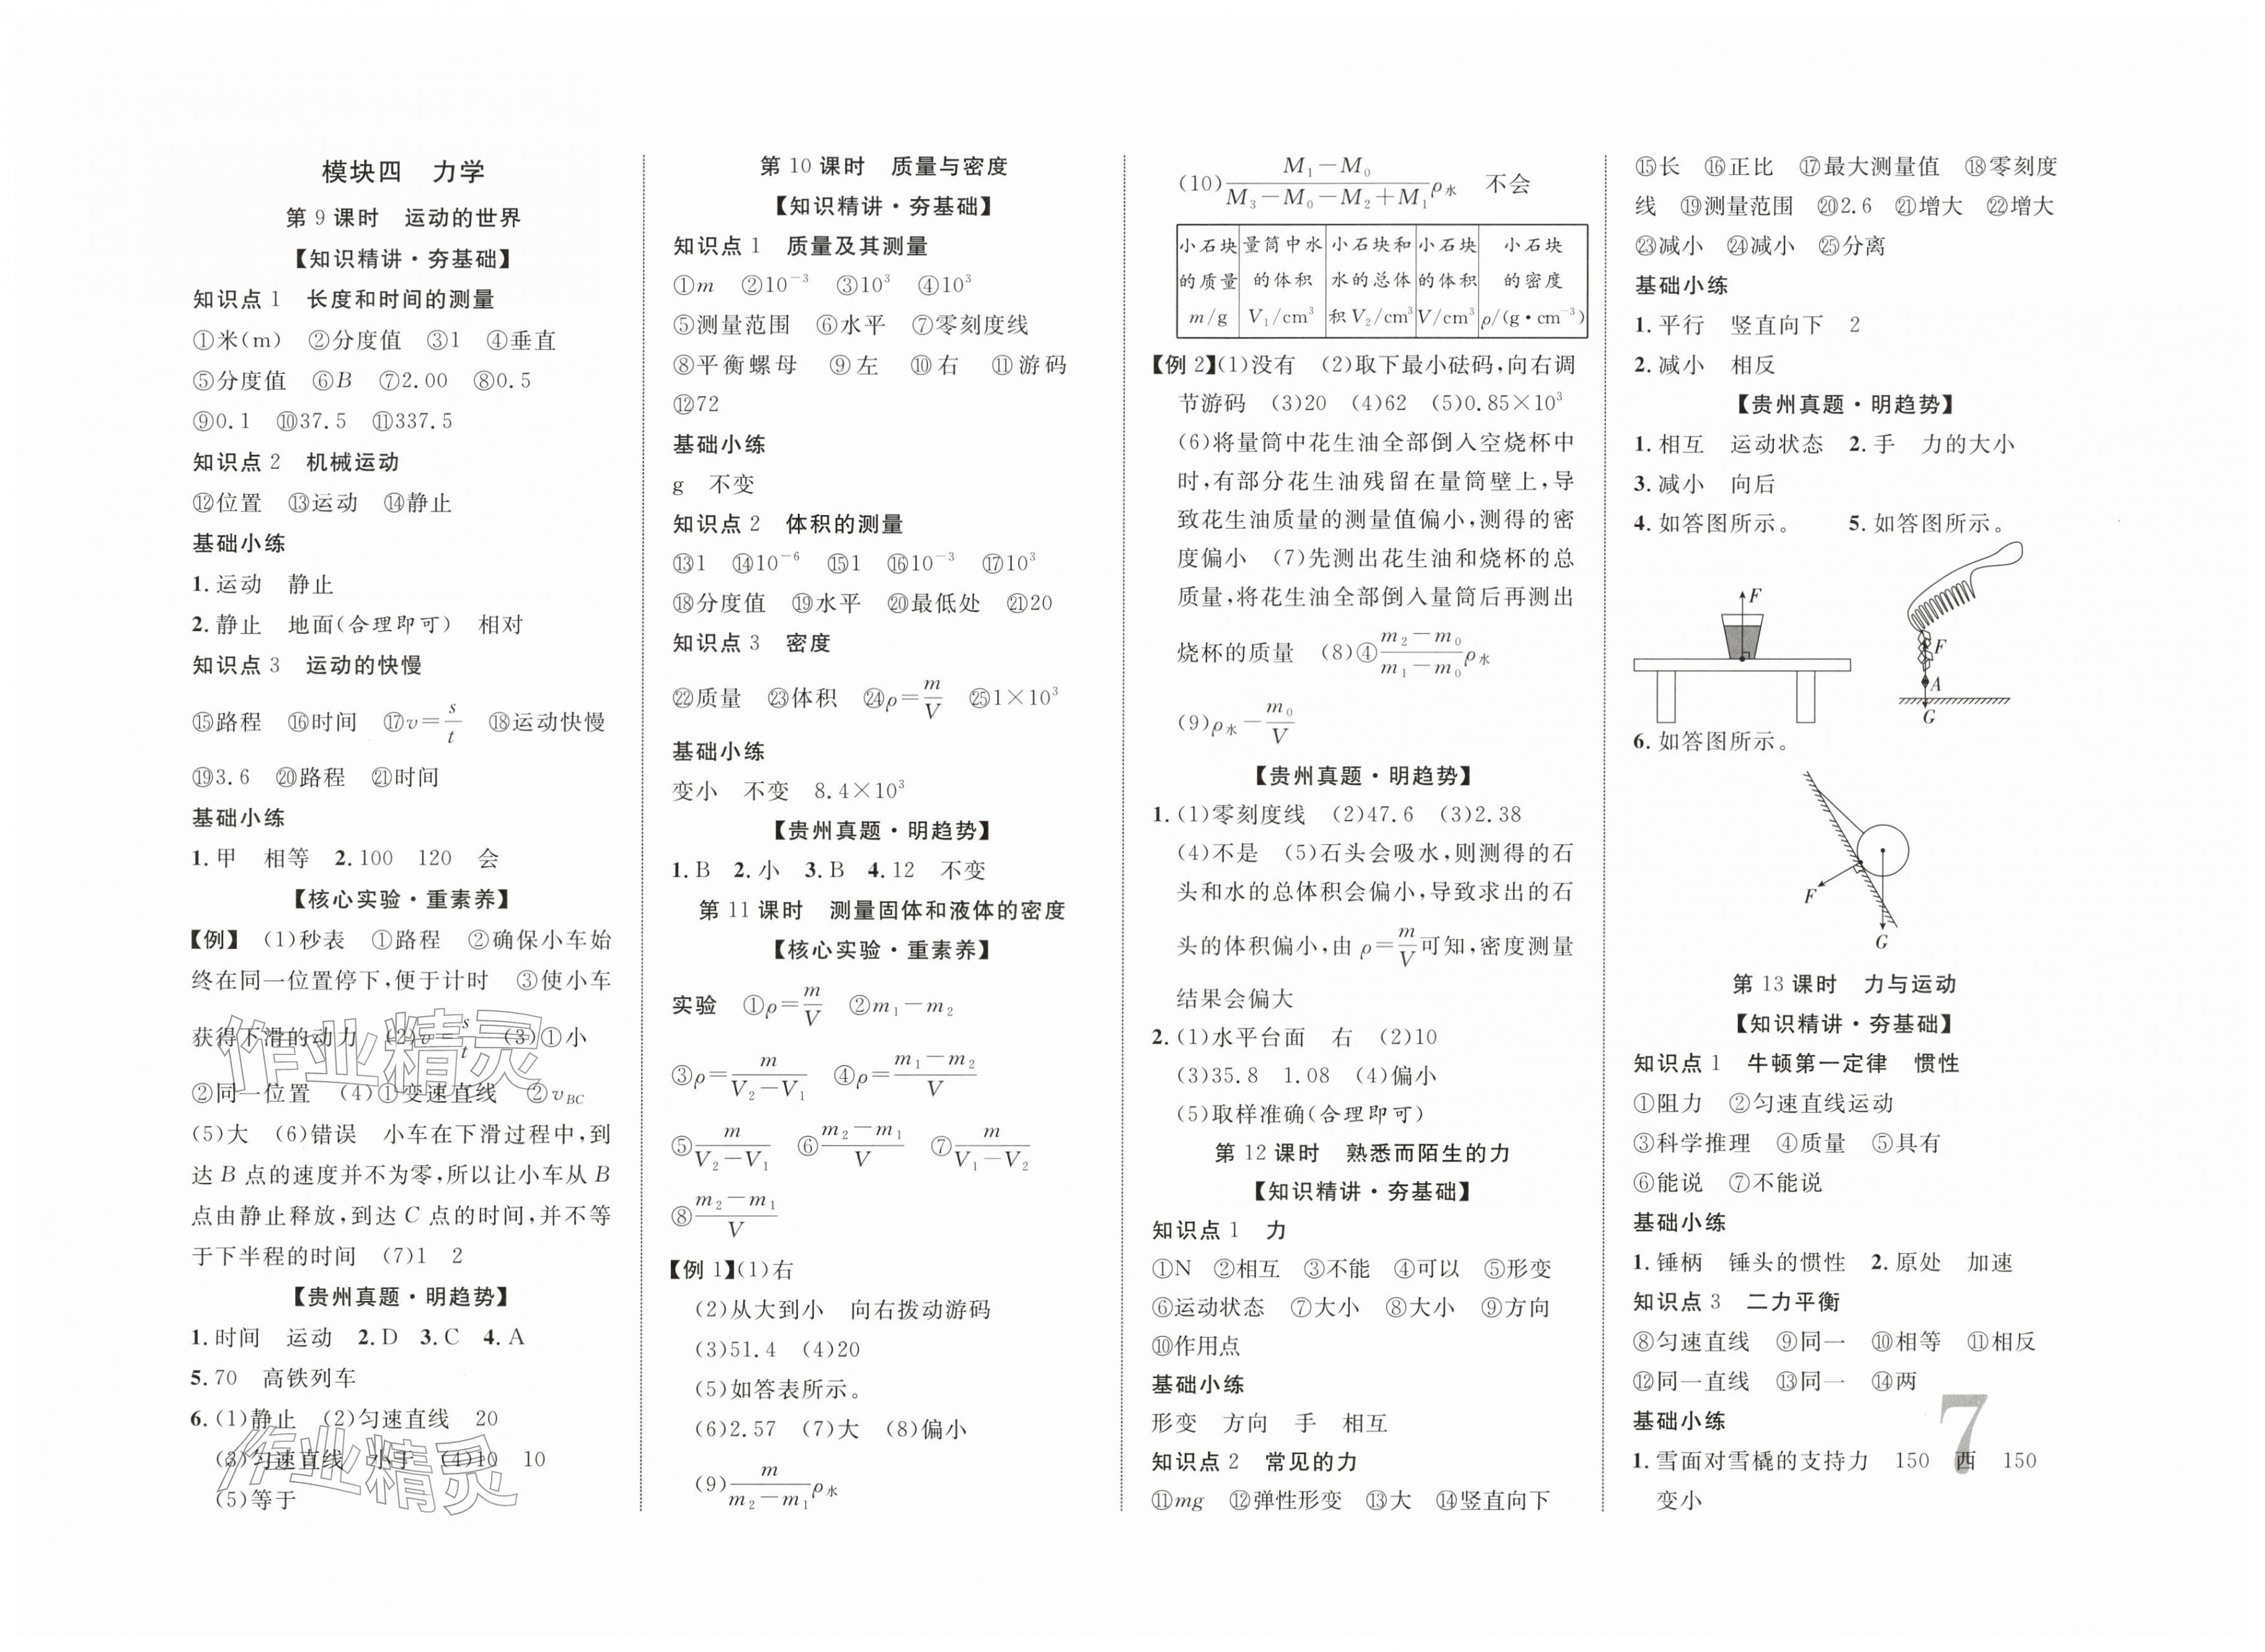 模块四 力学
第 9 课时 运动的世界
【知识精讲·夯基础】
知识点 1 长度和时间的测量
①米(m) ②分度值 ③1 ④垂直
⑤分度值 ⑥B ⑦2.00 ⑧0.5
⑨0.1 ⑩37.5 ⑪337.5
知识点 2 机械运动
⑫位置 ⑬运动 ⑭静止
基础小练
1.运动 静止
2.静止 地面(合理即可) 相对
知识点 3 运动的快慢
⑮路程 ⑯时间 ⑰v=s/t ⑱运动快慢
⑲3.6 ⑳路程 ㉑时间
基础小练
1.甲 相等 2.100 120 会
【核心实验·重素养】
【例】 (1)秒表 ①路程 ②确保小车始
终在同一位置停下,便于计时 ③使小车
获得下滑的动力 (2)v=s/t (3)①小
②同一位置 (4)①变速直线 ②v_BC
(5)大 (6)错误 小车在下滑过程中,到
达 B 点的速度并不为零,所以让小车从 B
点由静止释放,到达 C 点的时间,并不等
于下半程的时间 (7)1 2
【贵州真题·明趋势】
1.时间 运动 2.D 3.C 4.A
5.70 高铁列车
6.(1)静止 (2)匀速直线 20
(3)匀速直线 小于 (4)10 10
(5)等于
作业精灵
作业精灵
第 10 课时 质量与密度
【知识精讲·夯基础】
知识点 1 质量及其测量
①m ②10⁻³ ③10³ ④10³
⑤测量范围 ⑥水平 ⑦零刻度线
⑧平衡螺母 ⑨左 ⑩右 ⑪游码
⑫72
基础小练
g 不变
知识点 2 体积的测量
⑬1 ⑭10⁻⁶ ⑮1 ⑯10⁻³ ⑰10³
⑱分度值 ⑲水平 ⑳最低处 ㉑20
知识点 3 密度
㉒质量 ㉓体积 ㉔ρ=m/V ㉕1×10³
基础小练
变小 不变 8.4×10³
【贵州真题·明趋势】
1.B 2.小 3.B 4.12 不变
第 11 课时 测量固体和液体的密度
【核心实验·重素养】
实验 ①ρ=m/V ②m₁-m₂
③ρ=m/(V₂-V₁) ④ρ=(m₁-m₂)/V
⑤m/(V₂-V₁) ⑥(m₂-m₁)/V ⑦m/(V₁-V₂)
⑧(m₂-m₁)/V
【例 1】(1)右
(2)从大到小 向右拨动游码
(3)51.4 (4)20
(5)如答表所示。
(6)2.57 (7)大 (8)偏小
(9)m/(m₂-m₁)ρ水
(10)(M₁-M₀)/(M₃-M₀-M₂+M₁)ρ水 不会
小石块 量筒中水 小石块和 小石块 小石块
的质量 的体积 水的总体 的体积 的密度
m/g V₁/cm³ 积V₂/cm³ V/cm³ ρ/(g·cm⁻³)
【例 2】(1)没有 (2)取下最小砝码,向右调
节游码 (3)20 (4)62 (5)0.85×10³
(6)将量筒中花生油全部倒入空烧杯中
时,有部分花生油残留在量筒壁上,导
致花生油质量的测量值偏小,测得的密
度偏小 (7)先测出花生油和烧杯的总
质量,将花生油全部倒入量筒后再测出
烧杯的质量 (8)④(m₂-m₀)/(m₁-m₀)ρ水
(9)ρ水-m₀/V
【贵州真题·明趋势】
1.(1)零刻度线 (2)47.6 (3)2.38
(4)不是 (5)石头会吸水,则测得的石
头和水的总体积会偏小,导致求出的石
头的体积偏小,由 ρ=m/V可知,密度测量
结果会偏大
2.(1)水平台面 右 (2)10
(3)35.8 1.08 (4)偏小
(5)取样准确(合理即可)
第 12 课时 熟悉而陌生的力
【知识精讲·夯基础】
知识点 1 力
①N ②相互 ③不能 ④可以 ⑤形变
⑥运动状态 ⑦大小 ⑧大小 ⑨方向
⑩作用点
基础小练
形变 方向 手 相互
知识点 2 常见的力
⑪mg ⑫弹性形变 ⑬大 ⑭竖直向下
⑮长 ⑯正比 ⑰最大测量值 ⑱零刻度
线 ⑲测量范围 ⑳2.6 ㉑增大 ㉒增大
㉓减小 ㉔减小 ㉕分离
基础小练
1.平行 竖直向下 2
2.减小 相反
【贵州真题·明趋势】
1.相互 运动状态 2.手 力的大小
3.减小 向后
4.如答图所示。 5.如答图所示。
F
F
A
G
6.如答图所示。
F
G
第 13 课时 力与运动
【知识精讲·夯基础】
知识点 1 牛顿第一定律 惯性
①阻力 ②匀速直线运动
③科学推理 ④质量 ⑤具有
⑥能说 ⑦不能说
基础小练
1.锤柄 锤头的惯性 2.原处 加速
知识点 3 二力平衡
⑧匀速直线 ⑨同一 ⑩相等 ⑪相反
⑫同一直线 ⑬同一 ⑭两
基础小练
1.雪面对雪橇的支持力 150 西 150
变小
7